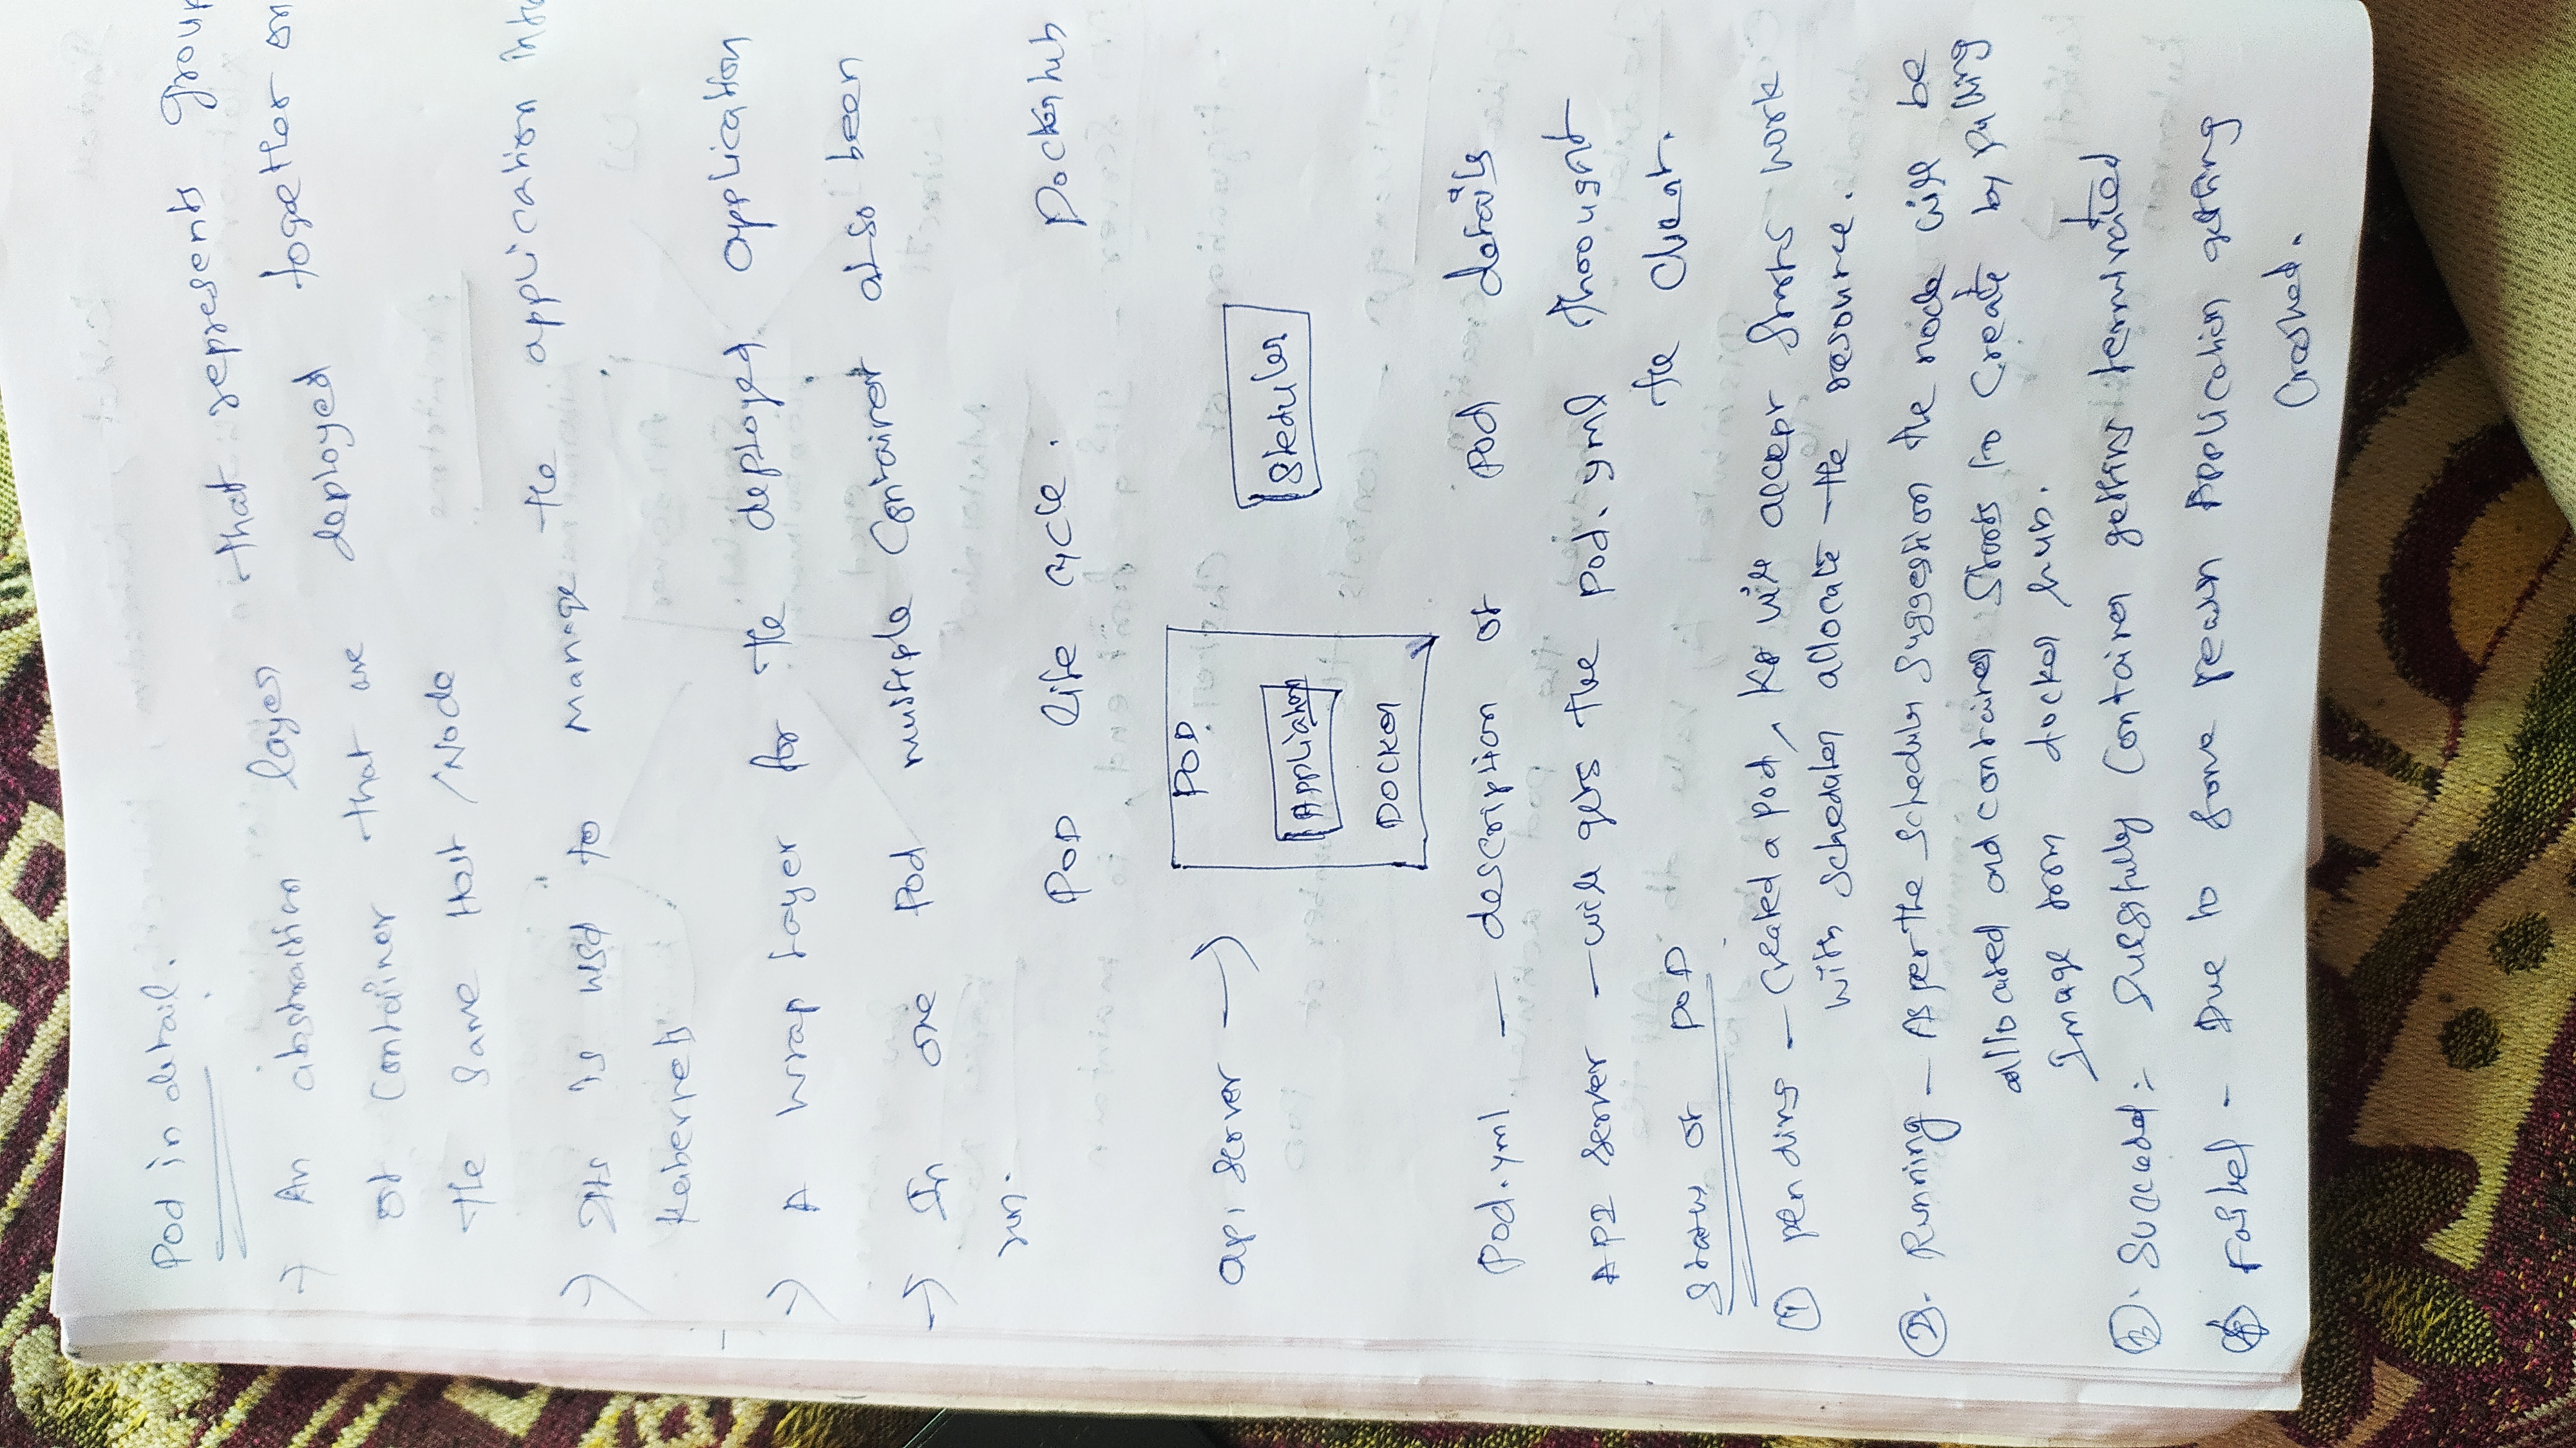 Pod in detail.
→ An abstraction layer that represents group
of container that are deployed together on
the same Host / Node
→ This is used to manage the application into
Kubernetes
→ A wrap layer for the deployed application
→ In one Pod multiple Container also been
run.
POD life cycle. Dockerhub
api server → POD
Application
DOCKER
Sheduler
Pod.yml — description of Pod details
API server — will gets the pod.yml throught
the Client.
Status of POD
① pending — Created a pod, K8 will accept starts work
with scheduler allocate the resource.
②. Running — As per the scheduler suggestion the node will be
allocated and container starts to create by pulling
Image from docker hub.
③. Succeded :- Sucessfully Container getting terminated
④ Failed - Due to some reason Application getting
Crashed.